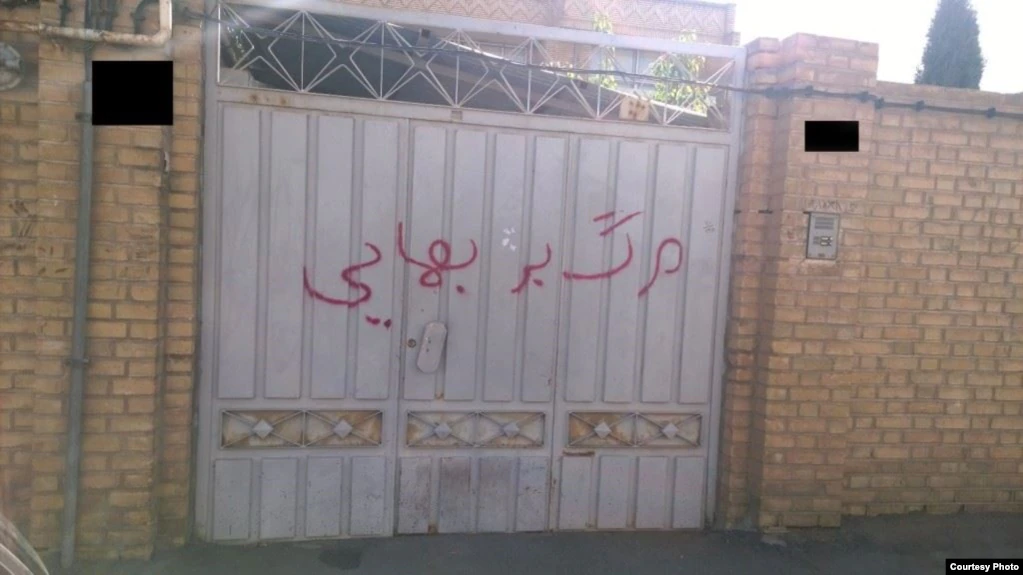 مرگ بر بهایی
Courtesy Photo